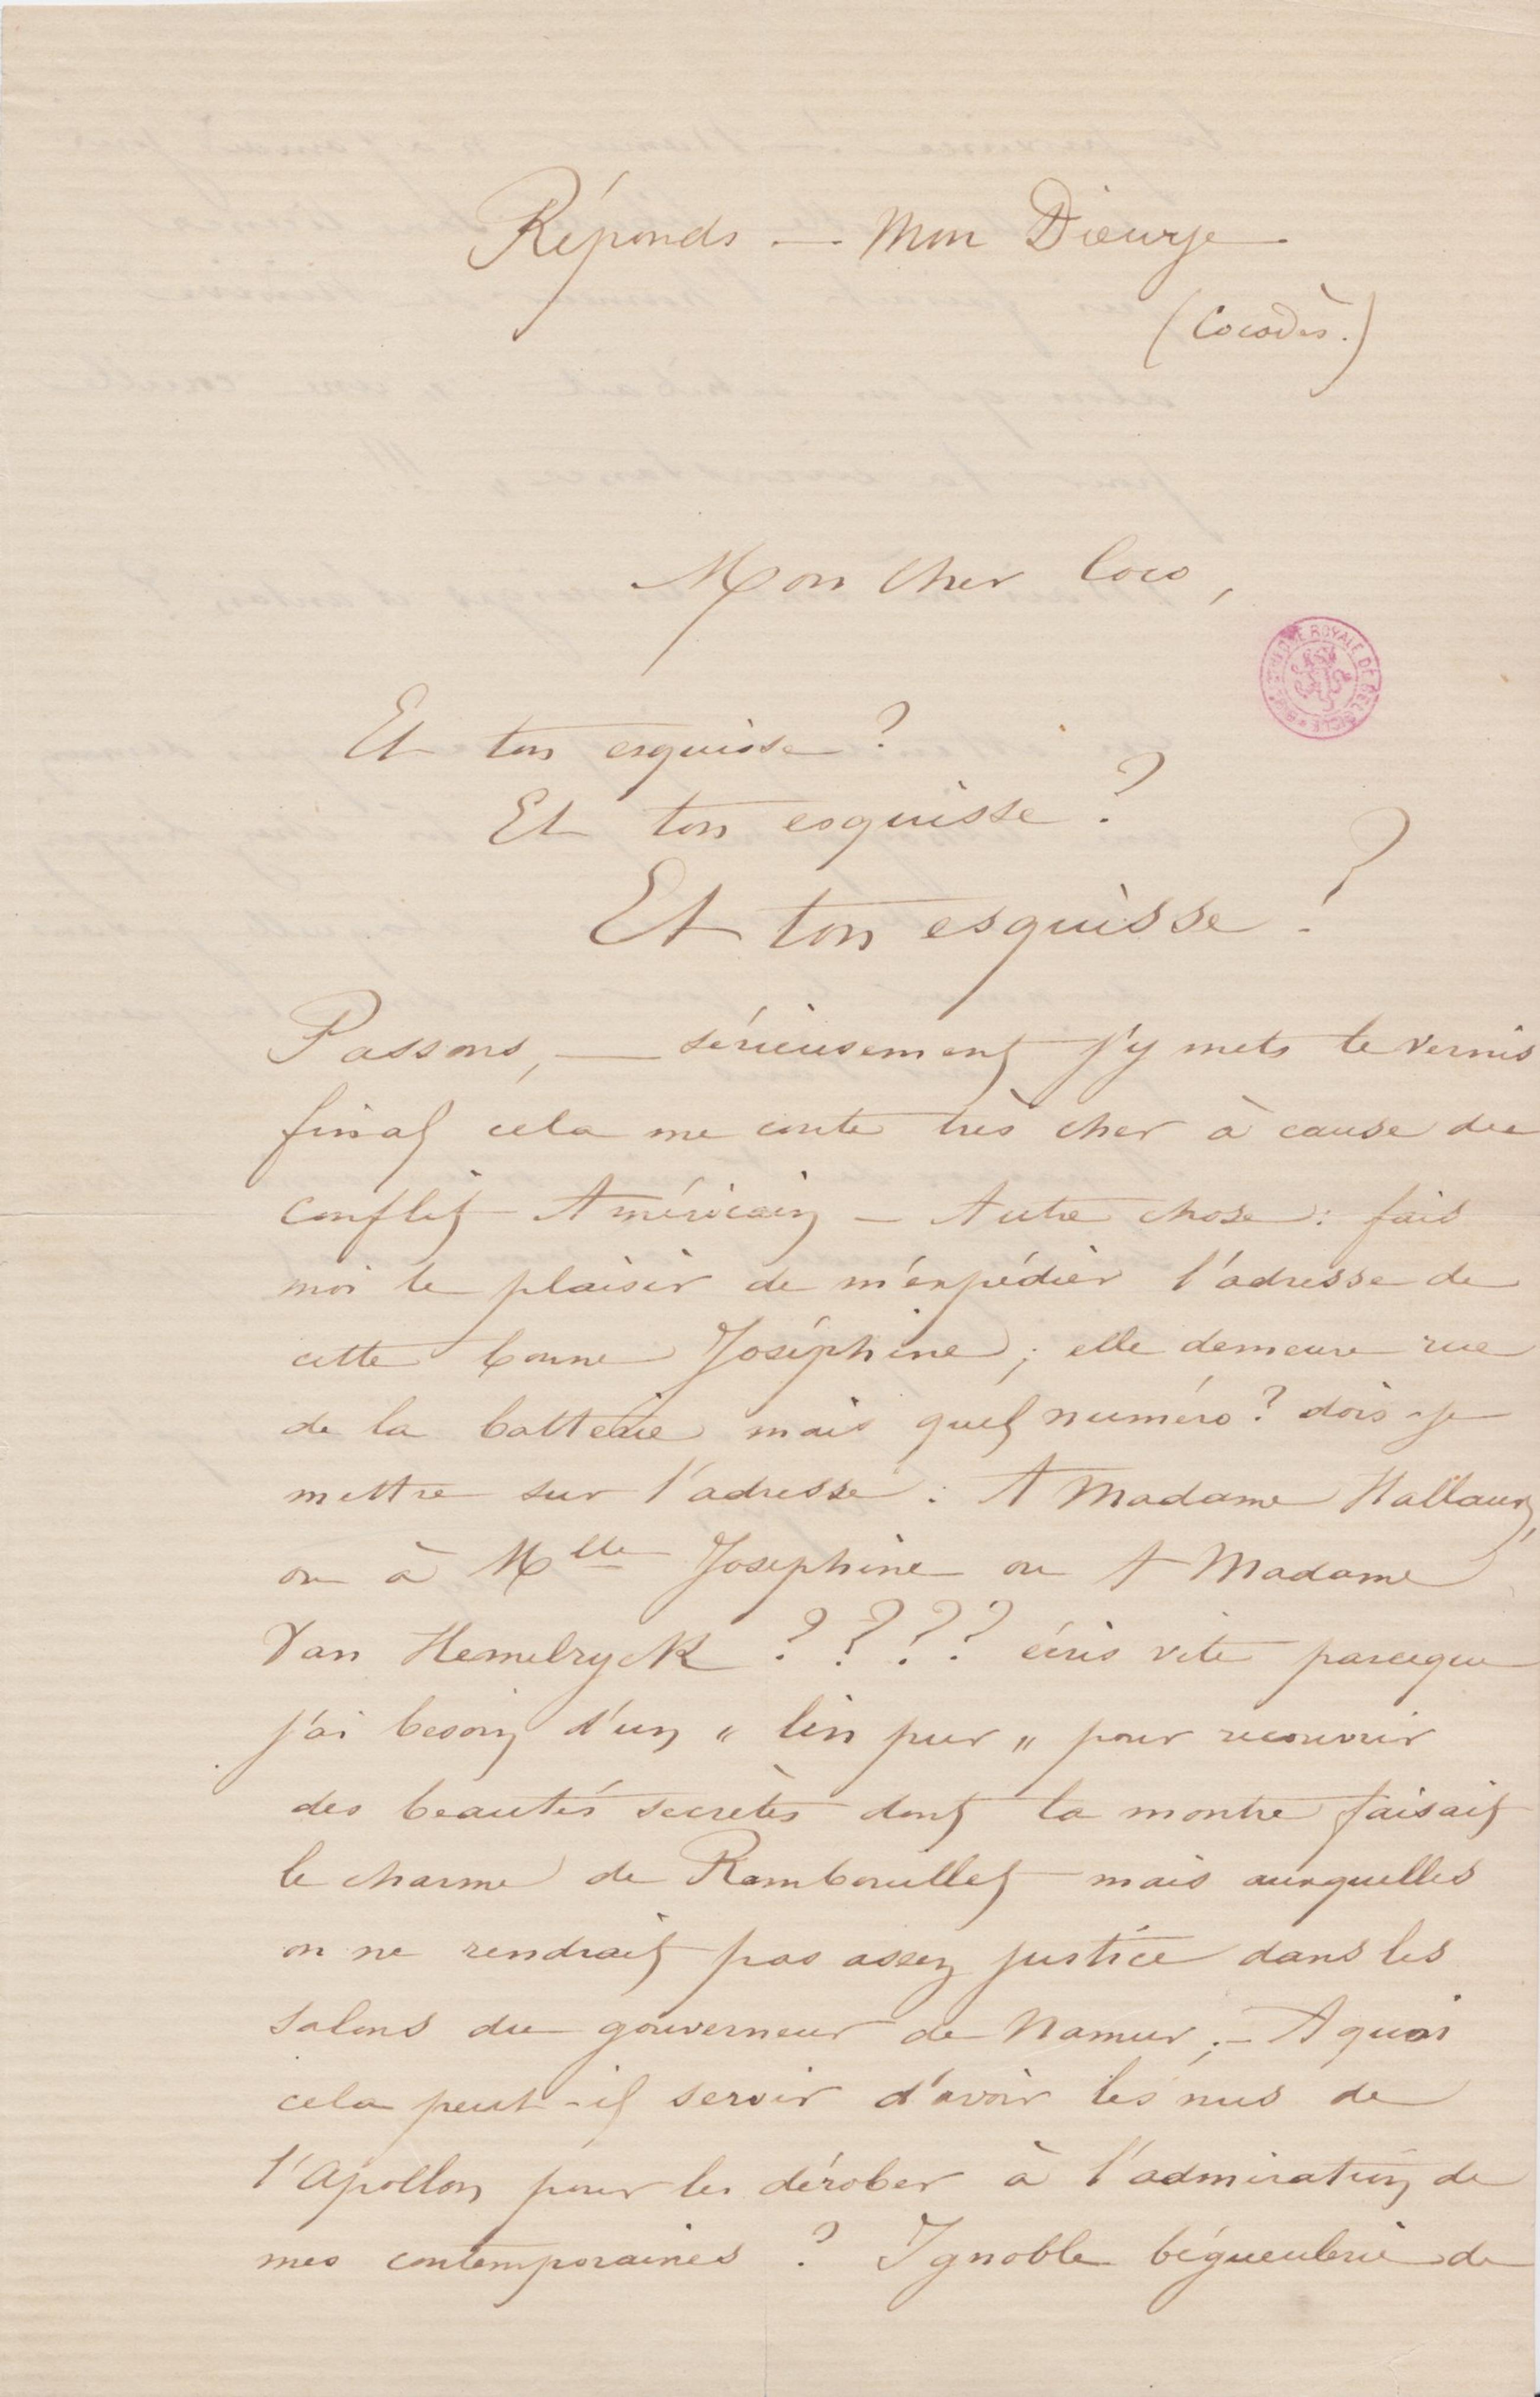 Réponds — Mon Dieurje
(Cocodès.)
Mon cher Coco,
BIBLIOTHÈQUE ROYALE DE BELGIQUE
Et ton esquisse ?
Et ton esquisse ?
Et ton esquisse ?
Passons, — sérieusement j'y mets le vernis
final cela me coute très cher à cause du
conflit Américain — Autre chose : fais
moi le plaisir de m'expédier l'adresse de
cette bonne Joséphine ; elle demeure rue
de la batterie mais quel numéro ? dois-je
mettre sur l'adresse : A Madame Hallaux,
ou à Mlle Josephine ou A Madame
Van Hemelryck ? ? ? ? écris vite parceque
j'ai besoin d'un " lin pur " pour recouvrir
des beautés secrètes dont la montre faisait
le charme de Rambouillet mais auxquelles
on ne rendrait pas assez justice dans les
salons du gouverneur de Namur ; — A quoi
cela peut-il servir d'avoir les nus de
l'Apollon pour les dérober à l'admiration de
mes contemporaines ? Ignoble bégueulerie de